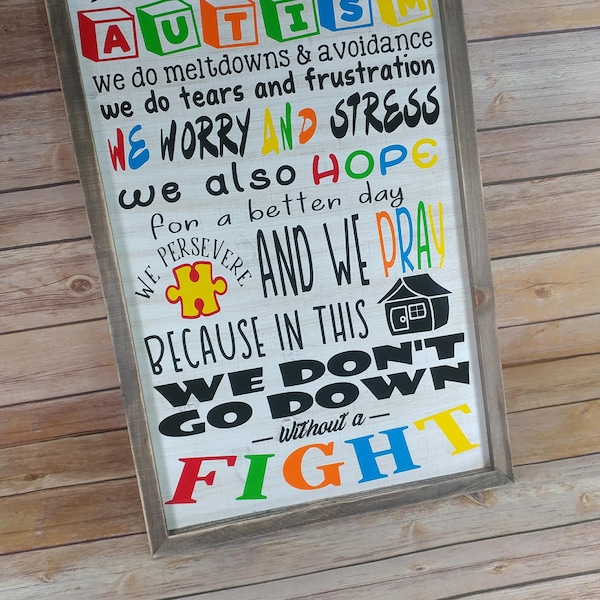 AUTISM
we do meltdowns & avoidance
we do tears and frustration
WE WORRY AND STRESS
we also HOPE
for a better day
WE PERSEVERE
AND WE PRAY
BECAUSE IN THIS
WE DON'T
GO DOWN
without a
FIGHT